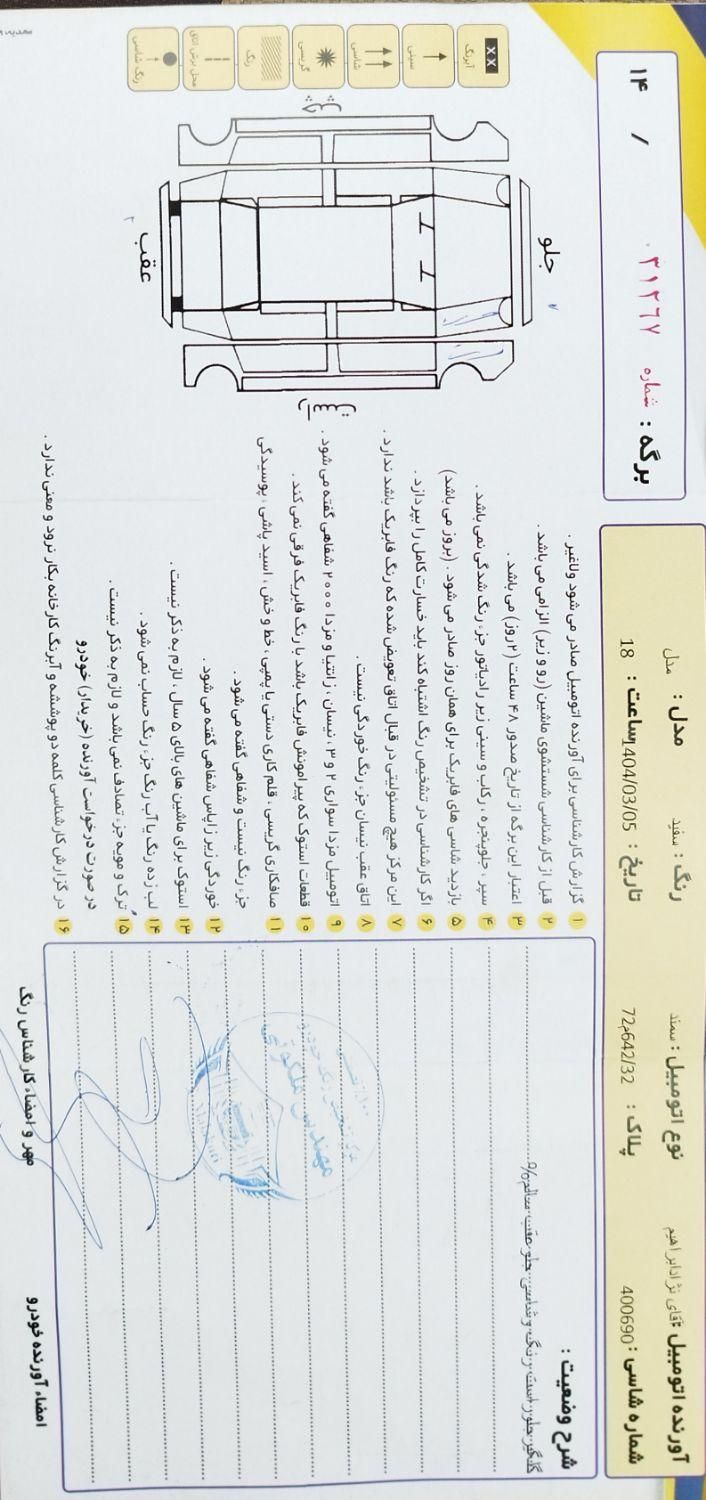 آورنده اتومبیل : آقای نژادابراهیم نوع اتومبیل : سمند رنگ : سفید مدل : مدل
شماره شاسی : 400690 پلاک : 642/32م72 تاریخ : 1404/03/05 ساعت : 18
برگه : شماره ۰۳۱۲۶۷ / ۱۴
شرح وضعیت :
گلگیر جلو راست رنگ و شاسی جلو عقب سالم%
۱ گزارش کارشناسی برای آورنده اتومبیل صادر می شود ولاغیر .
۲ قبل از کارشناسی شستشوی ماشین (رو و زیر) الزامی می باشد .
۳ اعتبار این برگه از تاریخ صدور ۴۸ ساعت (۲روز) می باشد .
۴ سپر ، جلوپنجره ، رکاب و سینی زیر رادیاتور جزء رنگ شدگی نمی باشد .
۵ بازدید شاسی های فابریک برای همان روز صادر می شود . (بروز می باشد)
۶ اگر کارشناسی در تشخیص رنگ اشتباه کند باید خسارت کامل را بپردازد .
۷ این مرکز هیچ مسئولیتی در قبال اتاق تعویض شده که رنگ فابریک باشد ندارد .
۸ اتاق عقب نیسان جزء رنگ خوردگی نیست .
۹ اتومبیل مزدا سواری ۲ و ۳ ، نیسان ، زانتیا و مزدا ۲۰۰۰ شفاهی گفته می شود .
۱۰ قطعات استوک که پیرامونش فابریک باشد با رنگ فابریک فرقی نمی کند .
۱۱ صافکاری گریسی ، قلم کاری دستی یا پمپی ، خط و خش ، اسید پاشی ، پوسیدگی
جزء رنگ نیست و شفاهی گفته می شود .
۱۲ خوردگی زیر زاپاس شفاهی گفته می شود .
۱۳ استوک برای ماشین های بالای ۵ سال ، لازم به ذکر نیست .
۱۴ لب زده رنگ یا آب رنگ جزء رنگ حساب نمی شود .
۱۵ ترک و مویه جزء تصادف نمی باشد و لازم به ذکر نیست .
در صورت درخواست آورنده (خریدار) خودرو
۱۶ در گزارش کارشناسی کلمه دو پوششه و آبرنگ کارخانه بکار نرود و معنی ندارد .
جلو
عقب
چپ
راست
XX آبرنگ
سینی
شاسی
گریسی
رنگ
محل برش اتاق
رنگ شاسی
مهندس ملکوتی
مهر و امضاء کارشناس رنگ
امضاء آورنده خودرو